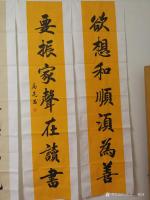 欲想和順須為善
要振家聲在讀書